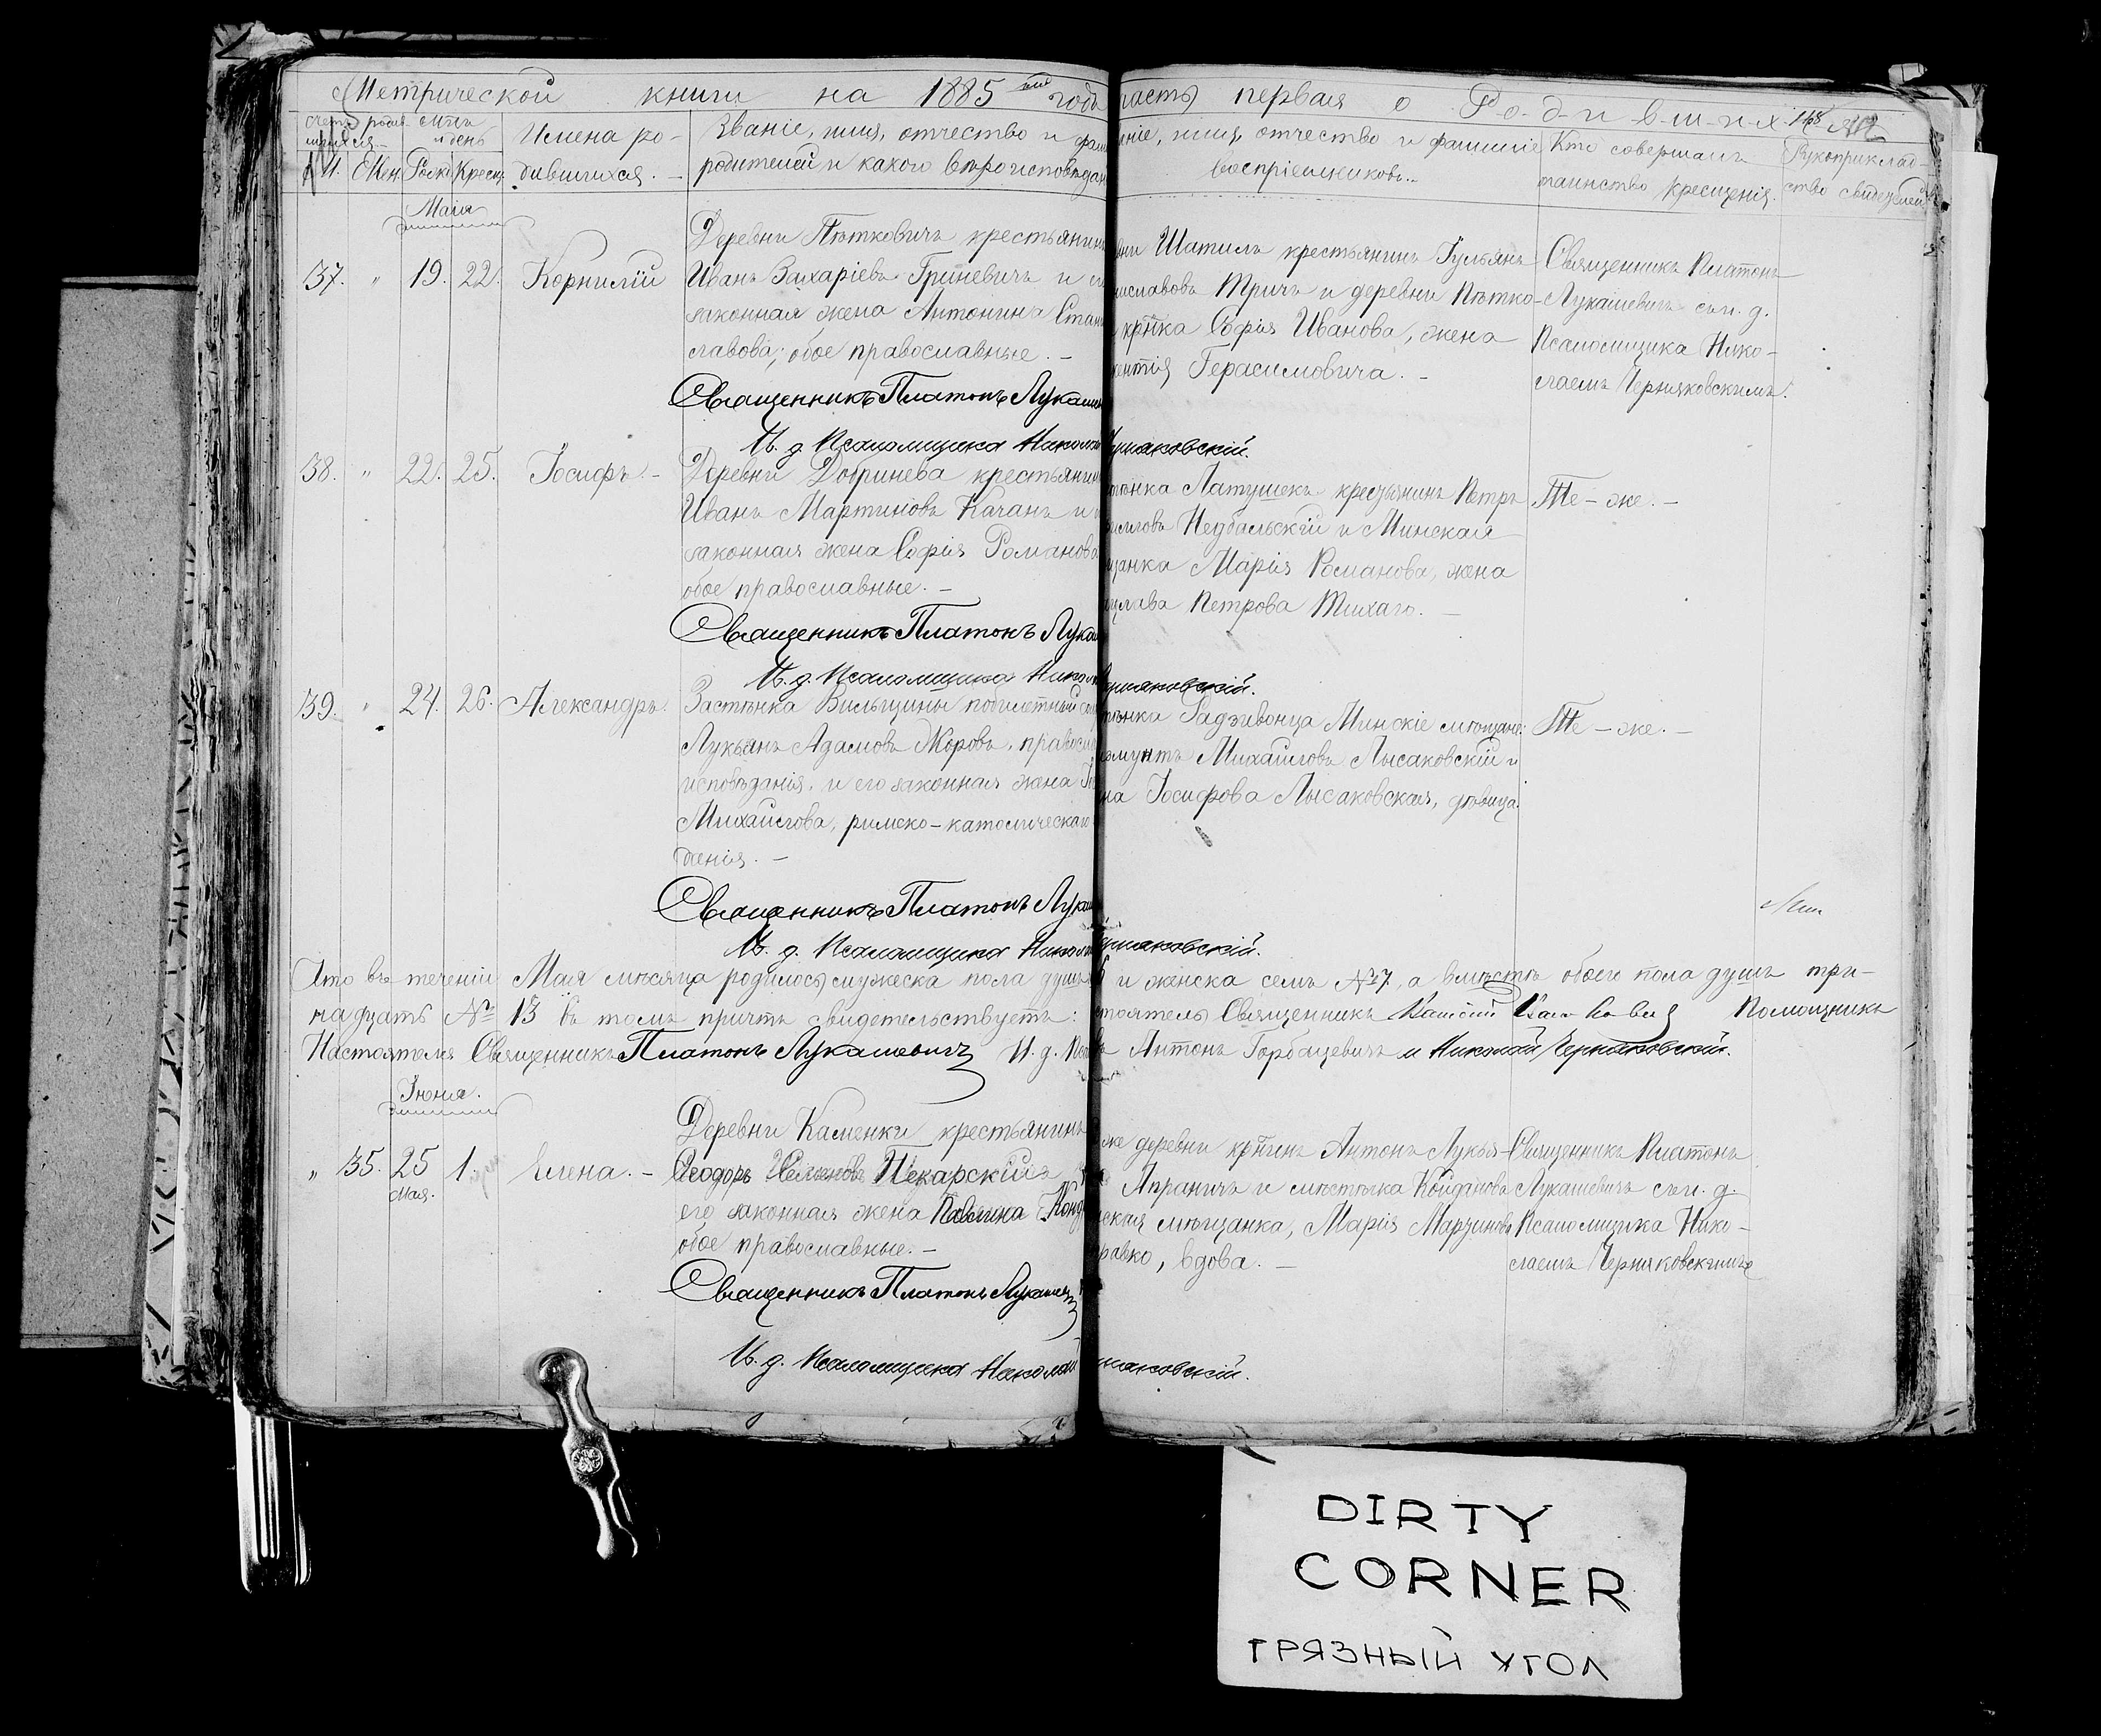 Метрической книги на 1885 год часть первая о Р-о-д-и-в-ш-и-х 148
М. Жен. Рожд. Крещ.
Имена ро-
дившихся. -
Званіе, имя, отчество и фам
родителей и какого вѣроисповѣдан
ніе, имя, отчество и фамиліе
воспріемниковъ..
Кто совершалъ
таинство крещенія.
Рукоприклад-
ство свидѣтелей
Маія
37. " 19. 22. Корнилій
Деревни Пѣтковичъ крестьянинъ
Иванъ Захаріевъ Гриневичъ и
законная жена Антонина Стан
славова; обое православные. -
вни Шатилъ крестьянинъ Іульянъ
ниславовъ Тричъ и деревни Пѣтко-
крт̃ка Софія Иванова, жена
ентія Герасимовича. -
Священникъ Платонъ
Лукашевичъ съ и. д.
Псаломщика Нико-
лаемъ Черняковскимъ.
Священникъ Платонъ Лукаше
И. д. Псаломщика Николай Черняковскій.
38. " 22. 25. Іосифъ. -
Деревни Добринева крестьянин
Иванъ Мартиновъ Качанъ и
законная жена Софія Романова
обое православные. -
тѣнка Латушекъ крестьянинъ Петръ
Недбальскій и Минская
щанка Марія Романова, жена
цлава Петрова Тихаго. -
Тѣ-же. -
Священникъ Платонъ Лука
И. д. Псаломщика Никол Черняковскій.
39. " 24. 26. Александръ.
Застѣнка Вильщины побилетный
Лукьянъ Адамовъ Жоровъ, правосл
исповѣданія, и его законная жена
Михайлова, римско-католическаго
денія. -
тѣнка Радзивонца Минскіе мѣщане:
Михайловъ Лысаковскій и
на Іосифова Лысаковская, дѣвица.
Тѣ-же. -
Священникъ Платонъ Лука
И. д. Псаломщика Никол Черняковскій.
Что въ теченіи Мая мѣсяца родилось мужеска пола душъ 6 и женска семь №7, а вмѣстѣ обоего пола душъ три-
надцать № 13 въ томъ причтъ свидетельствуетъ: стоятель Священникъ Помощникъ
Настоятеля Священникъ Платонъ Лукашевичъ И. д. Антонъ Горбацевичъ и Николай Черняковскій.
Іюня.
" 35. 25 Мая. 1. Елена. -
Деревни Каменки крестьянинъ
Ѳеодоръ Пекарскій
его законная жена Павлина Конд
обое православные. -
же деревни крт̃нинъ Антонъ Лукья-
Апраничъ и мѣстечка Койданова
ская мѣщанка, Марія Мартинова
равко, вдова. -
Священникъ Платонъ
Лукашевичъ съ и. д.
Псаломщика Нико-
лаемъ Черняковскимъ
Священникъ Платонъ Лукашевич
И. д. Псаломщика Николай Черняковскій.
DIRTY
CORNER
ГРЯЗНЫЙ УГОЛ